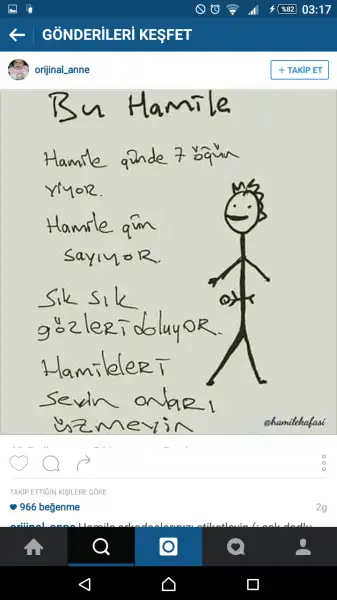 %82 03:17
GÖNDERİLERİ KEŞFET
orijinal_anne
+ TAKİP ET
Bu Hamile
Hamile günde 7 öğün
yiyor.
Hamile gün
sayıyor.
Sık sık
gözleri doluyor.
Hamileleri
sevin onları
üzmeyin
@hamilekafasi
TAKİP ETTİĞİN KİŞİLERE GÖRE
966 beğenme
2g
orijinal_anne Hamile arkadaşlarınızı etiketleyin (: çok dodlu